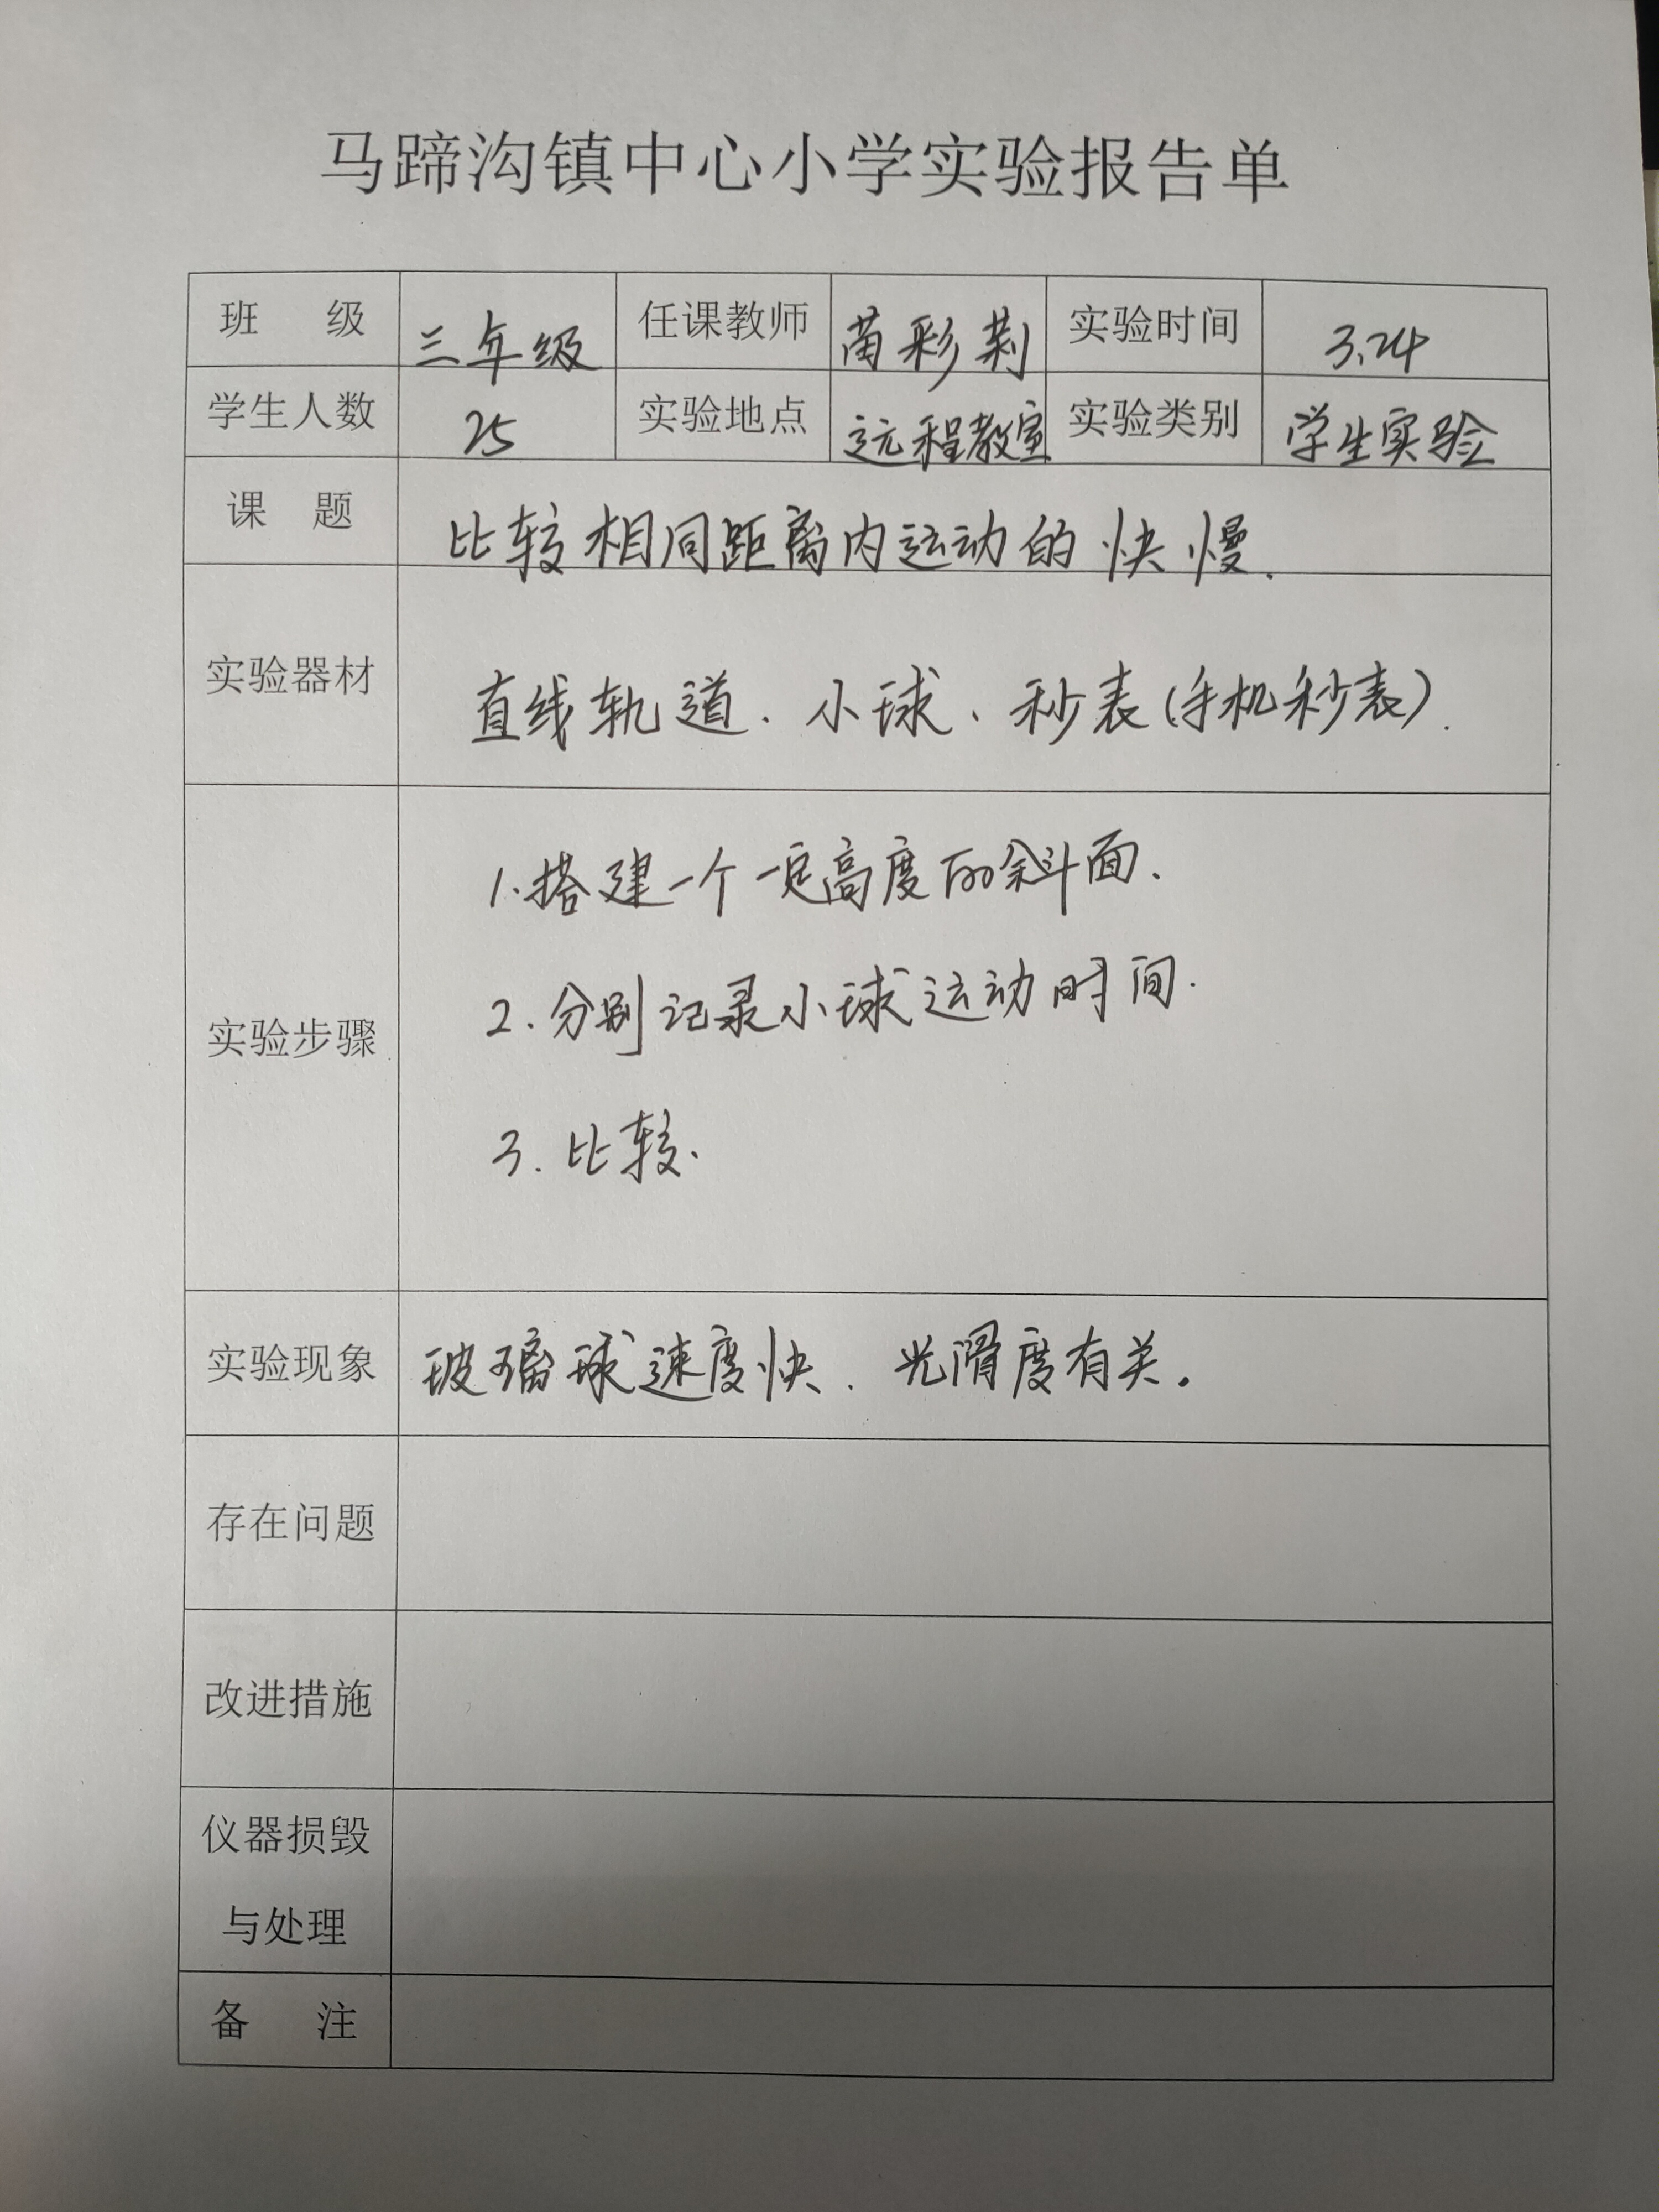 马蹄沟镇中心小学实验报告单
班 级 三年级 任课教师 苗彩莉 实验时间 3.24
学生人数 25 实验地点 远程教室 实验类别 学生实验
课 题 比较相同距离内运动的快慢.
实验器材 直线轨道、小球、秒表(手机秒表).
实验步骤
1.搭建一个一定高度的斜面.
2.分别记录小球运动时间.
3.比较.
实验现象 玻璃球速度快.光滑度有关。
存在问题
改进措施
仪器损毁
与处理
备 注